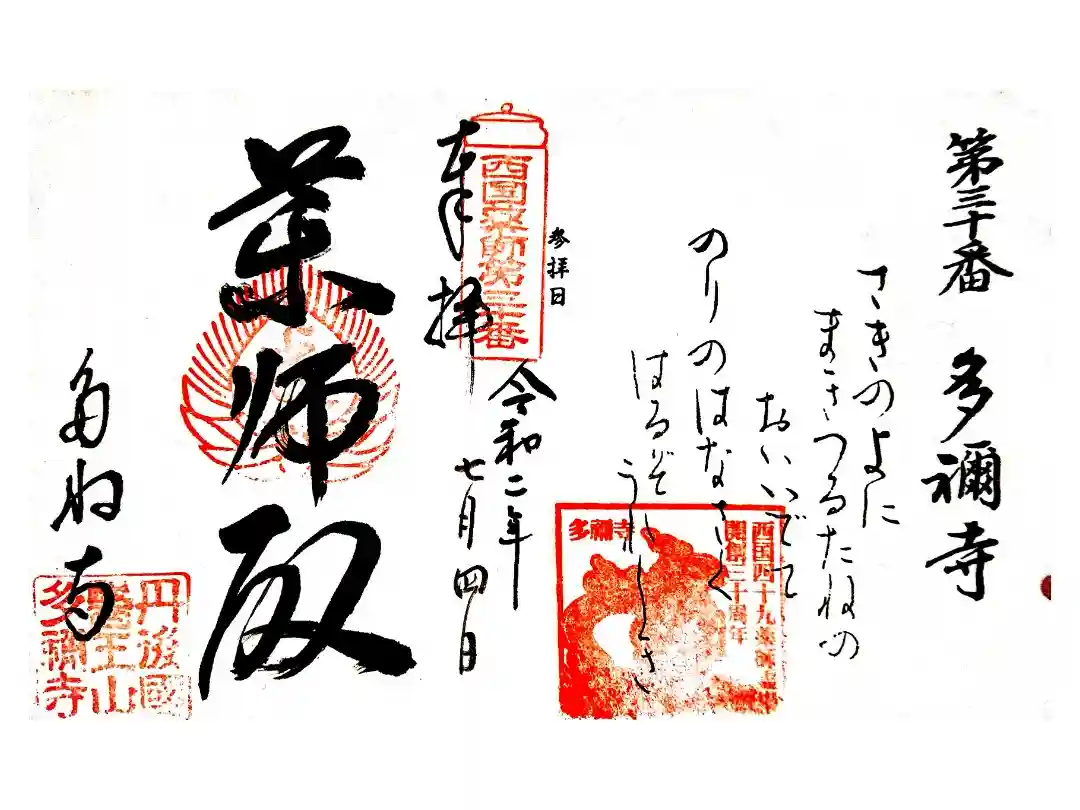 第三十番 多禰寺
さきのよに
まきつるたねの
おいいでて
のりのはなさく
はるぞ
うれしき
参拝日
奉拝
西国薬師第三十番
令和二年
七月四日
薬師殿
多祢寺
多禰寺
西国四十九薬師霊場
開創三十周年
丹後國
醫王山
多禰寺